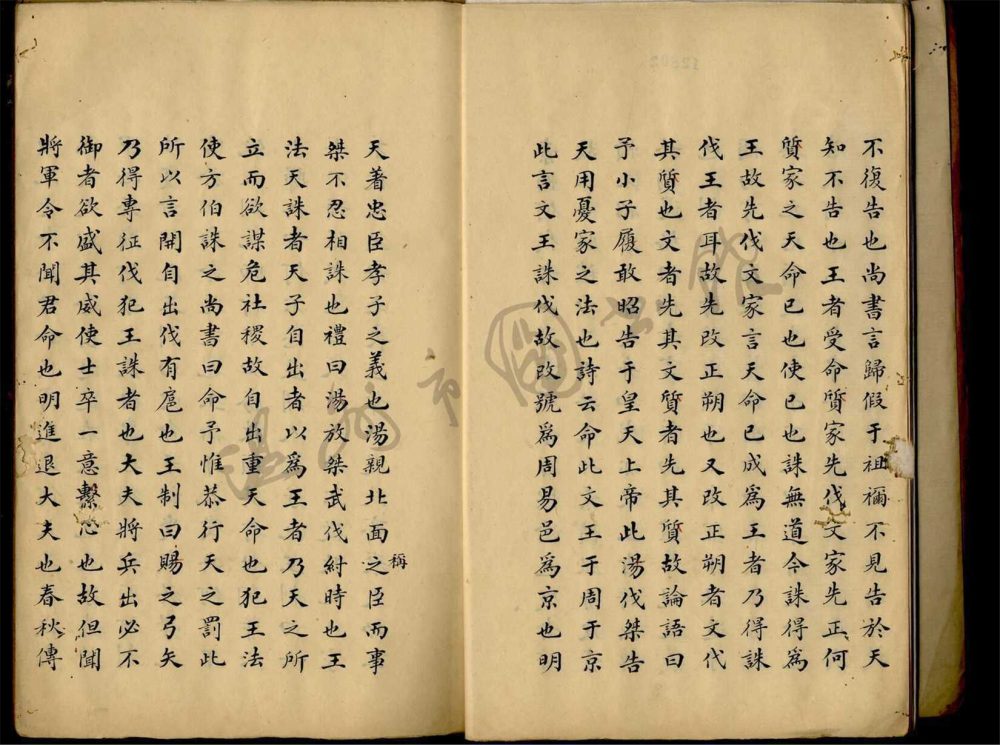 不復告也尚書言歸假于祖禰不見告於天
知不告也王者受命質家先伐文家先正何
質家之天命已也使已也誅無道今誅得為
王故先伐文家言天命已成為王者乃得誅
伐王者耳故先改正朔也又改正朔者文代
其質也文者先其文質者先其質故論語曰
予小子履敢昭告于皇天上帝此湯伐桀告
天用憂家之法也詩云命此文王于周于京
此言文王誅伐故改號為周易邑為京也明
天著忠臣孝子之義也湯親北面之臣而事
稱
桀不忍相誅也禮曰湯放桀武伐紂時也王
法天誅者天子自出者以為王者乃天之所
立而欲謀危社稷故自出重天命也犯王法
使方伯誅之尚書曰命予惟恭行天之罰此
所以言開自出伐有扈也王制曰賜之弓矢
乃得專征伐犯王誅者也大夫將兵出必不
御者欲盛其威使士卒一意繫心也故但聞
將軍令不聞君命也明進退大夫也春秋傳
溫州市圖書館